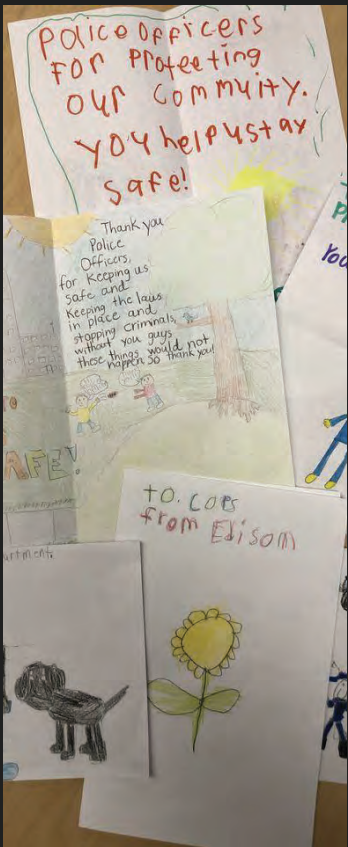 Police Officers
For Proteeting
our Commuity.
you help us stay
safe!
Thank you
Police
Officers,
for Keeping us
safe and
Keeping the laws
in place and
stopping criminals,
without you guys
these things would not
happen so thank you!
AFE!
You
to. Cops
from Edisom
artment